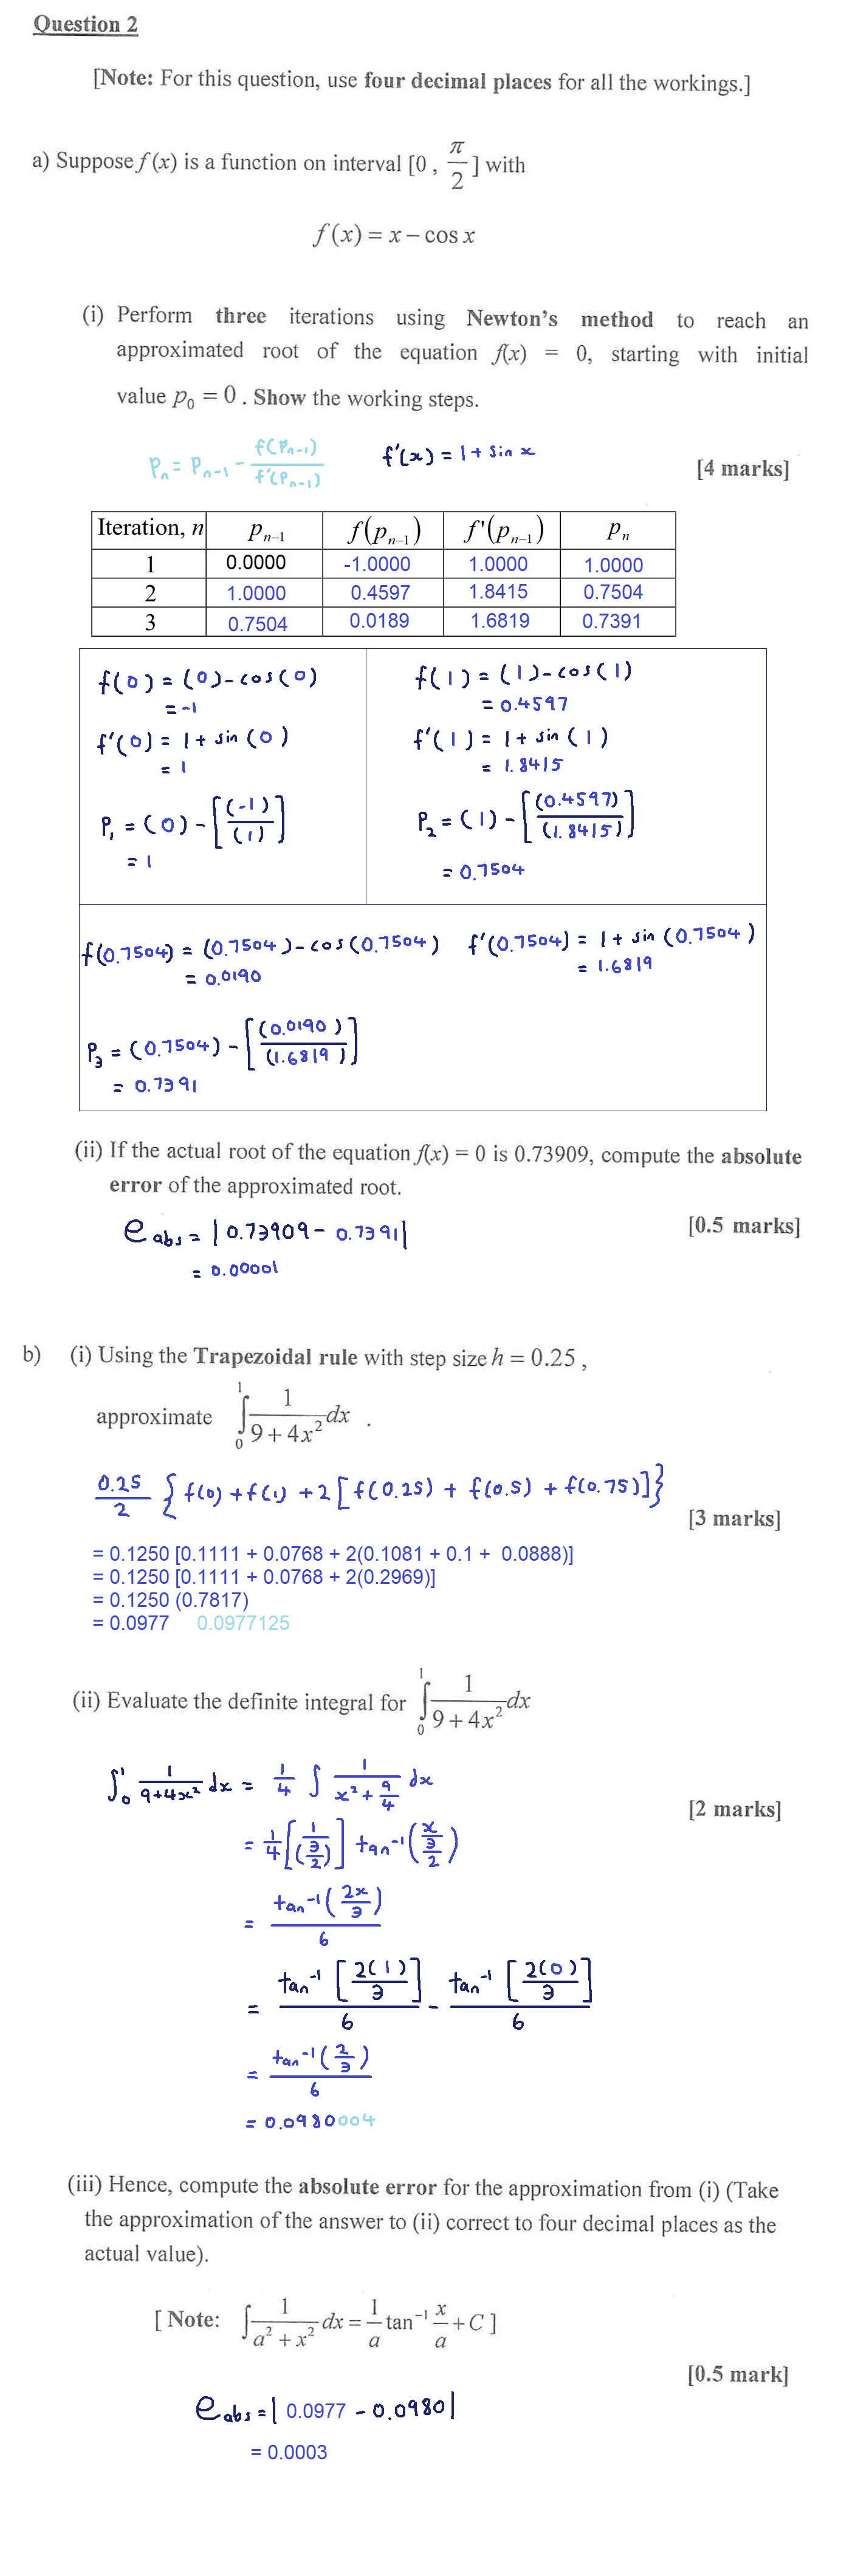 Question 2
[Note: For this question, use four decimal places for all the workings.]
a) Suppose f (x) is a function on interval [0 , π/2 ] with
f (x) = x – cos x
(i) Perform three iterations using Newton's method to reach an
approximated root of the equation f(x) = 0, starting with initial
value p₀ = 0 . Show the working steps.
Pₙ = Pₙ₋₁ - f(Pₙ₋₁)/f'(Pₙ₋₁) f'(x) = 1 + sin x
[4 marks]
Iteration, n pₙ₋₁ f(pₙ₋₁) f'(pₙ₋₁) pₙ
1 0.0000 -1.0000 1.0000 1.0000
2 1.0000 0.4597 1.8415 0.7504
3 0.7504 0.0189 1.6819 0.7391
f(0) = (0)-cos(0)
= -1
f'(0) = 1 + sin (0)
= 1
P₁ = (0) - [(-1)/(1)]
= 1
f(1) = (1)-cos(1)
= 0.4597
f'(1) = 1 + sin (1)
= 1.8415
P₂ = (1) - [(0.4597)/(1.8415)]
= 0.7504
f(0.7504) = (0.7504)-cos(0.7504) f'(0.7504) = 1 + sin (0.7504)
= 0.0190 = 1.6819
P₃ = (0.7504) - [(0.0190)/(1.6819)]
= 0.7391
(ii) If the actual root of the equation f(x) = 0 is 0.73909, compute the absolute
error of the approximated root.
[0.5 marks]
e abs = | 0.73909 - 0.7391|
= 0.00001
b) (i) Using the Trapezoidal rule with step size h = 0.25 ,
approximate ∫₀¹ 1/(9 + 4x²) dx .
0.25/2 { f(0) + f(1) + 2 [ f(0.25) + f(0.5) + f(0.75)]}
[3 marks]
= 0.1250 [0.1111 + 0.0768 + 2(0.1081 + 0.1 + 0.0888)]
= 0.1250 [0.1111 + 0.0768 + 2(0.2969)]
= 0.1250 (0.7817)
= 0.0977 0.0977125
(ii) Evaluate the definite integral for ∫₀¹ 1/(9 + 4x²) dx
∫₀¹ 1/(9+4x²) dx = 1/4 ∫ 1/(x² + 9/4) dx
[2 marks]
= 1/4 [1/(3/2)] tan⁻¹ (x/(3/2))
= tan⁻¹(2x/3)/6
= tan⁻¹ [2(1)/3]/6 - tan⁻¹ [2(0)/3]/6
= tan⁻¹(2/3)/6
= 0.0980004
(iii) Hence, compute the absolute error for the approximation from (i) (Take
the approximation of the answer to (ii) correct to four decimal places as the
actual value).
[ Note: ∫ 1/(a² + x²) dx = 1/a tan⁻¹ x/a + C ]
[0.5 mark]
e abs = | 0.0977 - 0.0980|
= 0.0003